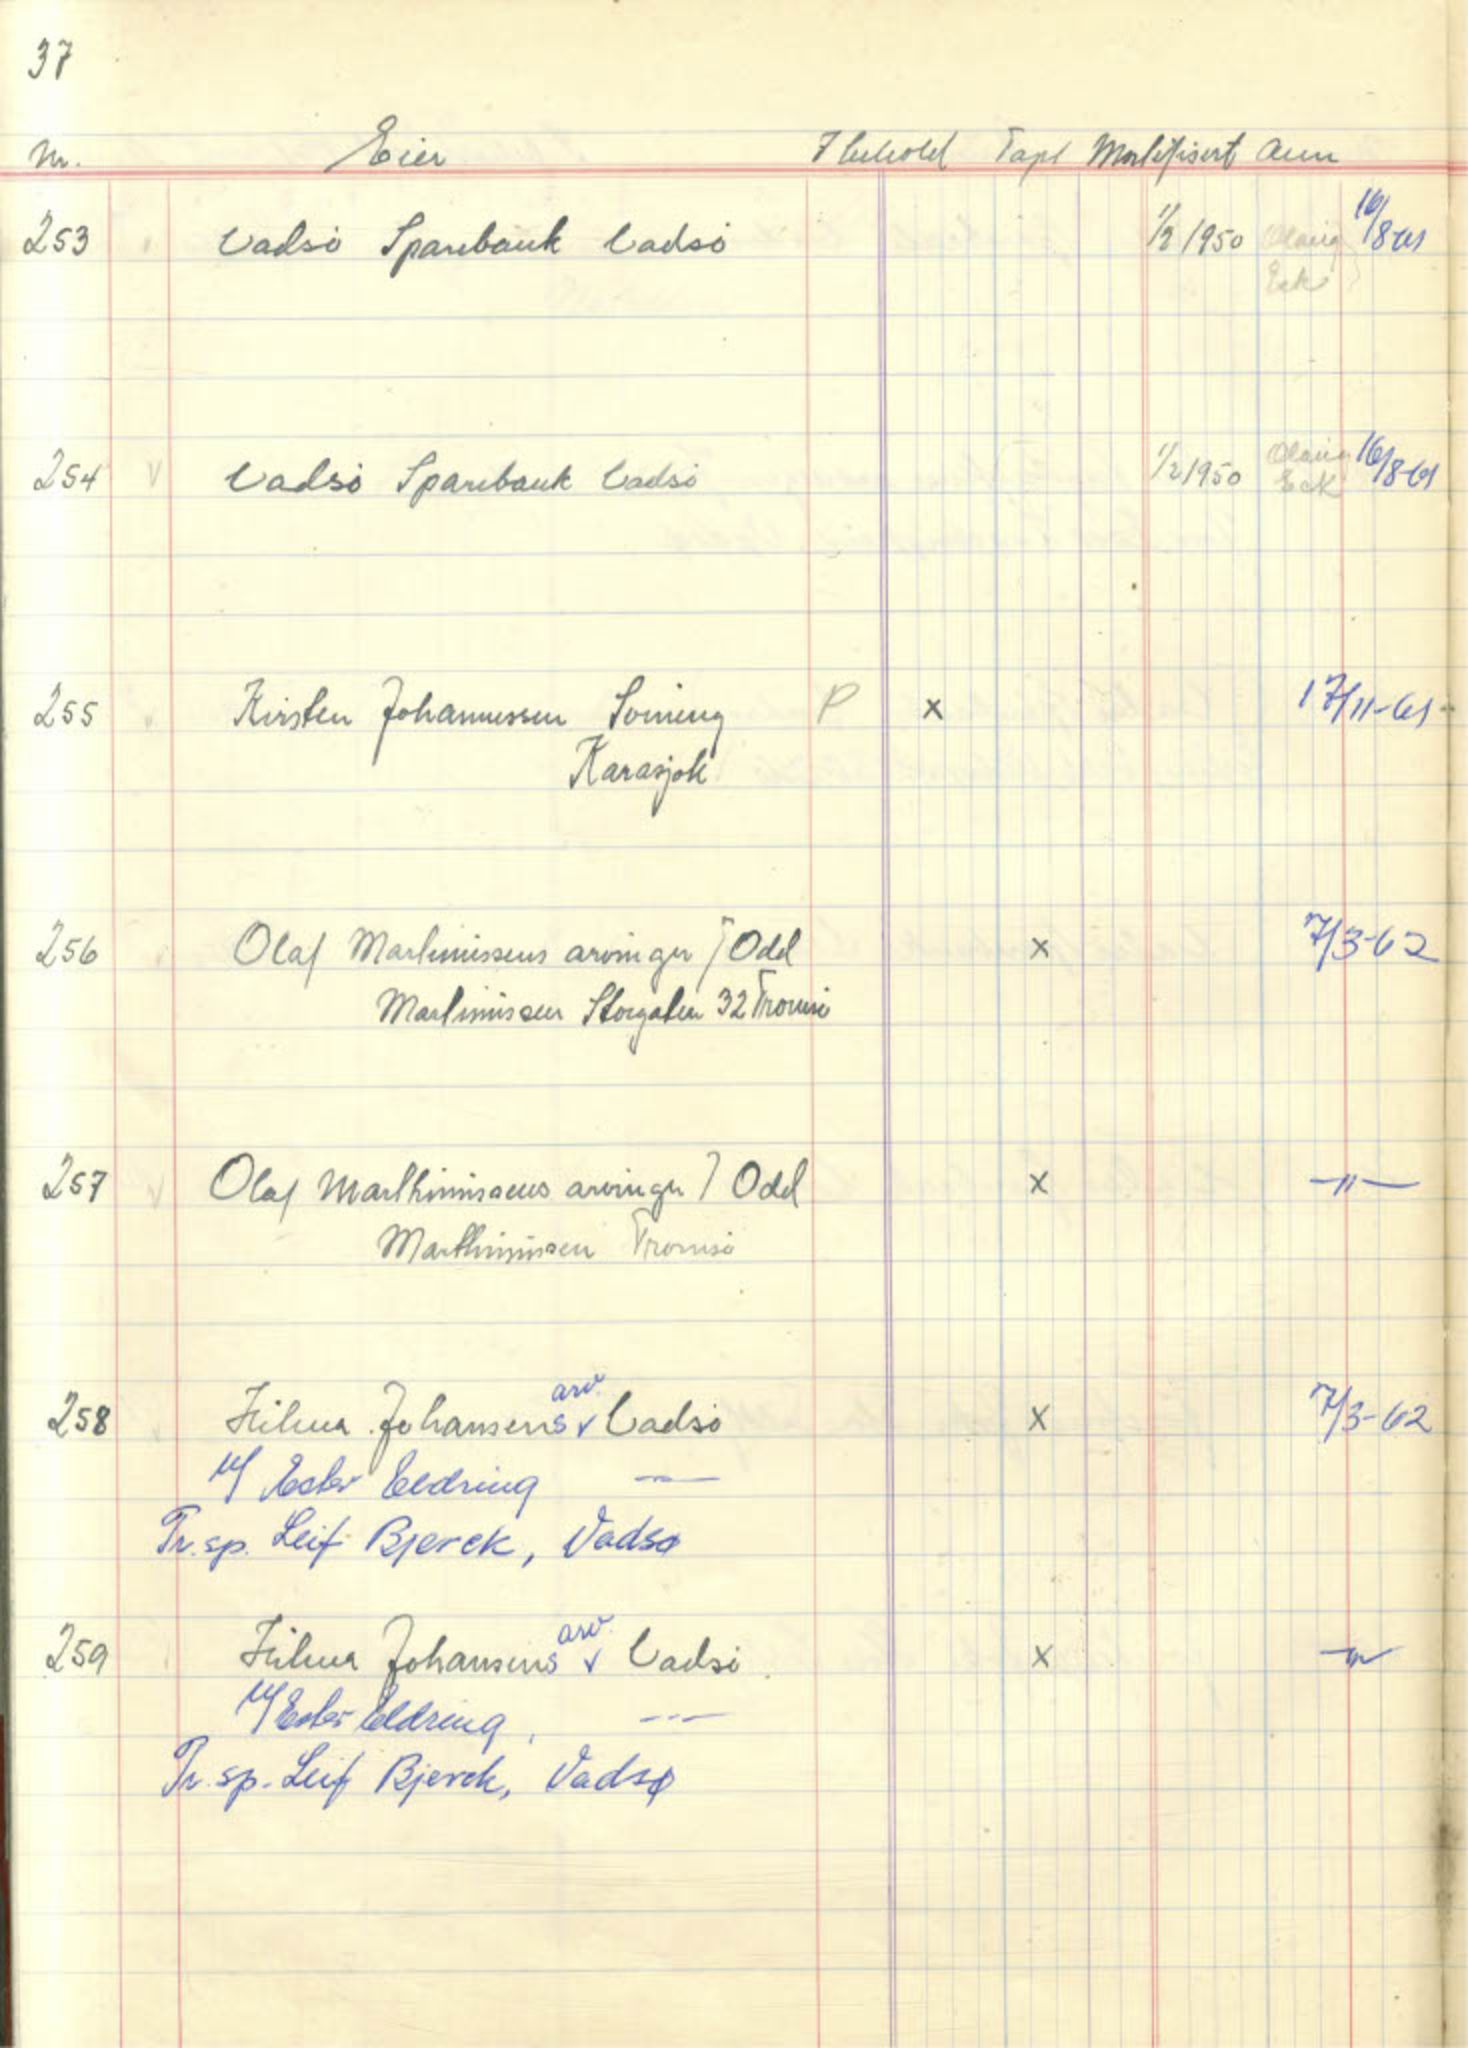 37
Nr. Eier I behold Tapt Mortifisert Ann
253 Vadsö Sparebank Vadsö 1/2 1950 Olaug 16/8-61
Eck
254 v Vadsö Sparebank Vadsö 1/2 1950 Olaug 16/8-61
Eck
255 Kirsten Johannessen P x 17/11-61
Karasjok
256 Olaf Martinissens arvinger / Odd x 7/3-62
Martinissen Storgaten 32 Tromsö
257 v Olaf Marthinissens arvinger / Odd x —"—
Marthinissen Tromsö
arv.
258 Hilma Johansens v Vadsö x 7/3-62
v/ Ester Eldring —
Tr. sp. Leif Bjerck, Vadsø
arv.
259 Hilma Johansens v Vadsö x —"—
v/ Ester Eldring, ---
Tr. sp. Leif Bjerck, Vadsø